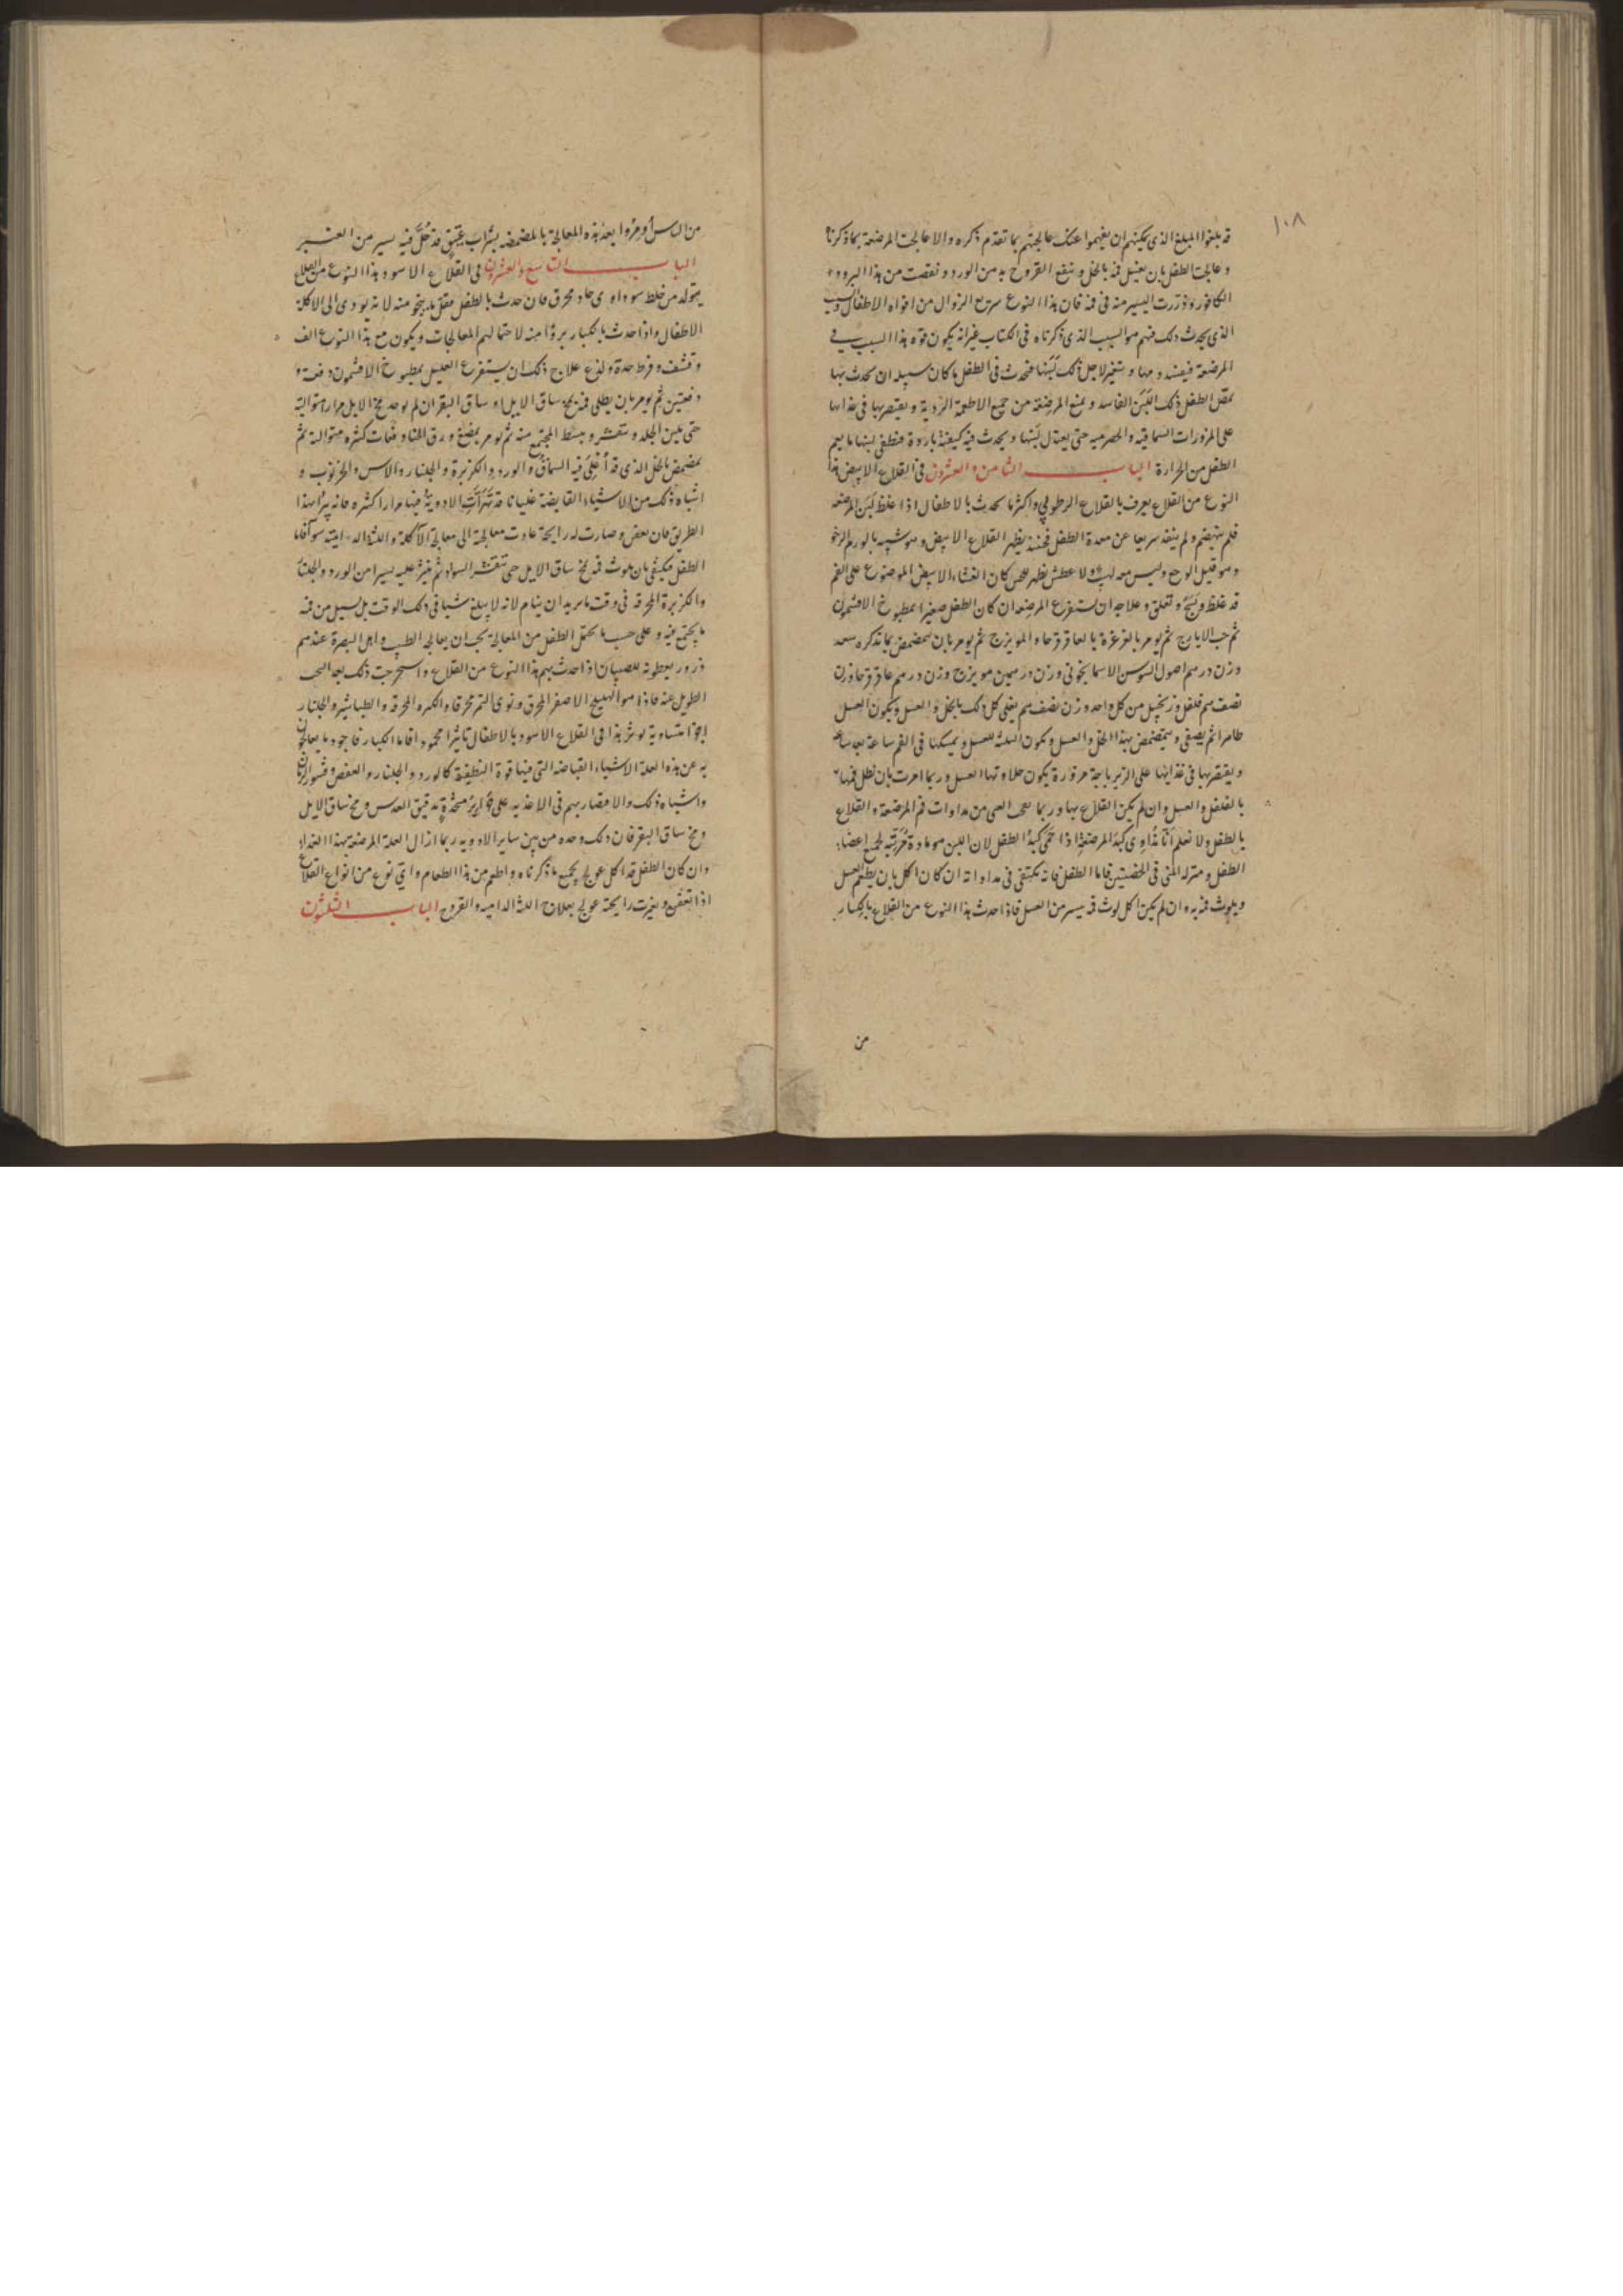 ١٠٨
قد بلغوا المبلغ الذي يمكنهم ان يفهموا عنك عالجتهم بما تقدم ذكره والا عالجت المرضعة بما ذكرنا
وعالجت الطفل بان يغسل فمه بالخل وتنقع القروح بدهن الورد ونقصت من هذا البرود
الكافور وذررت اليسير منه في فمه فان هذا النوع سريع الزوال من افواه الاطفال والسبب
الذي يحدث ذلك فيهم هو السبب الذي ذكرناه في الكتاب غير انه يكون قوة هذا السبب في
المرضعة فيفسد دمها ويتغير لاجل ذلك لبنها فتحدث في الطفل ما كان سبيله ان يحدث بها
لمص الطفل ذلك اللبن الفاسد ويمنع المرضعة من جميع الاطعمة الردية ويقتصر بها في غذائها
على المزورات السماقيه والحصرميه حتى يعتدل لبنها ويحدث فيه كيفية باردة فتطفي لبنها ما بهم
الطفل من الحرارة الباب الثامن والعشرون في القلاع الابيض هذا
النوع من القلاع يعرف بالقلاع الرطوبي واكثر ما يحدث بالاطفال اذا غلظ لبن المرضعه
فلم ينهضم ولم ينفذ سريعا عن معدة الطفل فحينئذ يظهر القلاع الابيض وهو شبيه بالورم الرخو
وهو قليل الوجع وليس معه لهيب ولا عطش يظهر للحس كان الغشاء الابيض الموضوع على الفم
قد غلظ وتعلق وعلاجه ان يستفرغ المرضعه ان كان الطفل صغيرا بمطبوخ الافتيمون
ثم حب الايارج ثم يومر بالغرغرة بالعاقرقرحا والمويزج ثم يومر بان يتمضمض بما نذكره سعد
وزن درهم اصول السوسن الاسمانجوني وزن درهمين مويزج وزن درهم عاقرقرحا وزن
نصف درهم فلفل وزنجبيل من كل واحد وزن نصف درهم يغلي كل ذلك بالخل والعسل ويكون العسل
ظاهرا ثم يصفى ويتمضمض بهذا الخل والعسل ويكون الثلثه للعسل ويمسكها في الفم ساعة بعد ساعة
ويقتصر بها في غذائها على الزيرباجة مزورة يكون حلاوتها العسل وربما امرت بان تطلي فمها
بالفلفل والعسل وان لم يكن القلاع بها وربما يعجب العمي من مداوات فم المرضعة والقلاع
بالطفل ولا نعلم انا نداوي كبد المرضعة اذا حمى كبد الطفل لان اللبن هو مادة لجميع اعضاء
الطفل ومنزله المني في الخصيتين فاما الطفل فانه يكتفى في مداواته ان كان اكل بان يطعم العسل
ويلوث فمه به وان لم يكن اكل لوث فمه بيسير من العسل فاذا حدث هذا النوع من القلاع بالكبار
من
من الناس اومروا بعد هذه المعالجة بالمضمضه بشراب عتيق قد حل فيه يسير من العنبر
الباب التاسع والعشرون في القلاع الاسود هذا النوع من القلاع
يتولد من خلط سوداوي حاد محرق فان حدث بالطفل فقل ما ينجو منه لانه يودي الى الاكلة
الاطفال واذا حدث بالكبار برؤا منه لاحتمالهم المعالجات ويكون مع هذا النوع الف
وقشف وفرط حدة ولذع علاج ذلك ان يستفرغ العليل بمطبوخ الافتيمون دفعة و
دفعتين ثم يومر بان يطلي فمه بمخ ساق الايل او ساق البقر ان لم يوجد مخ الايل مرارا متوالية
حتى يلين الجلد ويتقشر ويبسط المجتمع منه ثم يومر بمضغ ورق الحناء دفعات كثيره متوالية ثم
يمضمض بالخل الذي قد أغلي فيه السماق والورد والكزبرة والجلنار والاس والخرنوب و
اشباه ذلك من الاشياء القابضة غليانا قد تهرأت الادوية فيها مرارا كثيره فانه يبرأ بهذا
الطريق فان بعض وصارت له رايحة عادت معالجة الى معالجة الآكلة واللثة الدامية سوآ فاما
الطفل فيكتفى بان يلوث فمه بمخ ساق الايل حتى تتقشر السواد ثم ينثر عليه يسيرا من الورد والجلنار
والكزبرة المحرقه في وقت ما يريد ان ينام لانه لا يبلغ شيا في ذلك الوقت بل يسيل من فمه
ما يجتمع فيه وعلى حسب ما يحتمل الطفل من المعالجة يجب ان يعالجه الطبيب واهل البصرة عندهم
ذرور يعطونه للصبيان اذا حدث بهم هذا النوع من القلاع واستخرجت ذلك بعد البحث
الطويل عنه فاذا هو الهليلج الاصفر المحرق ونوى التمر محرقا والكزبره المحرقه والطباشير والجلنار
اجزا متساوية يوثر هذا في القلاع الاسود بالاطفال تاثيرا محمودا فاما الكبار فاجود ما يعالجون
به عن هذه العلة الاشياء القباضه التي فيها قوة التطفية كالورد والجلنار والعفص وقشور الرمان
واشباه ذلك والاقتصار بهم في الاغذيه على متخذة بدقيق العدس ومخ ساق الايل
ومخ ساق البقر فان ذلك وحده من بين ساير الادويه ربما ازال العلة المرضعة بهذا الغذاء
وان كان الطفل قد اكل عولج بجميع ما ذكرناه واطعم من هذا الطعام واي نوع من انواع القلاع
اذا تعفن وتغيرت رايحته عولج بعلاج اللثة الداميه والقروح الباب الثلثون